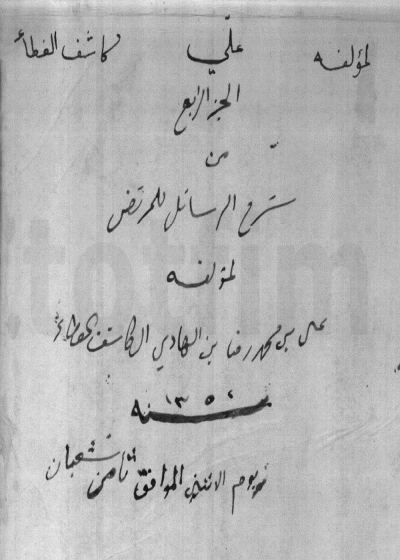 لمؤلفه علي كاشف الغطاء
الجزء الرابع
من
شرح الرسائل للمرتضى
لمؤلفه
علي بن محمد رضا بن الهادي الكاشف الغطاء
سنه ١٣٥٢
يوم الاثنين الموافق ثامن شعبان